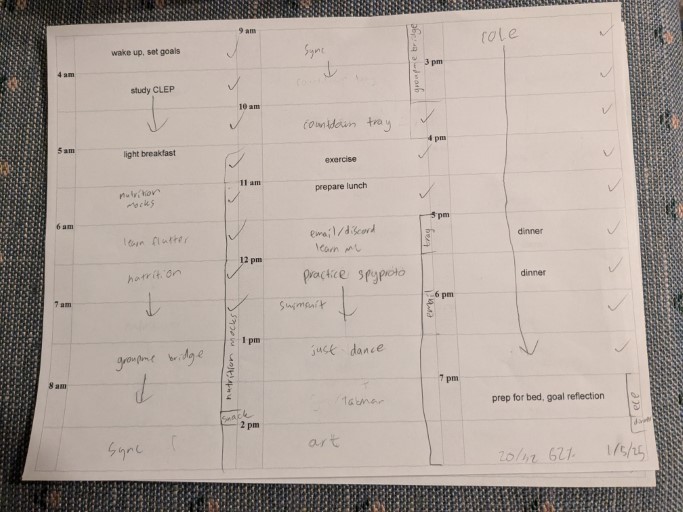 wake up, set goals
4 am
study CLEP
5 am
light breakfast
nutrition
mocks
6 am
learn flutter
nutrition
7 am
groupme bridge
8 am
sync
nutrition mocks
snack
9 am
sync
10 am
countdown tray
exercise
11 am
prepare lunch
email/discord
learn ML
12 pm
practice spyproto
swimsuit
1 pm
just dance
2 pm
art
groupme bridge
tray
email
role
3 pm
4 pm
5 pm
dinner
dinner
6 pm
7 pm
prep for bed, goal reflection
62%
1/5/25